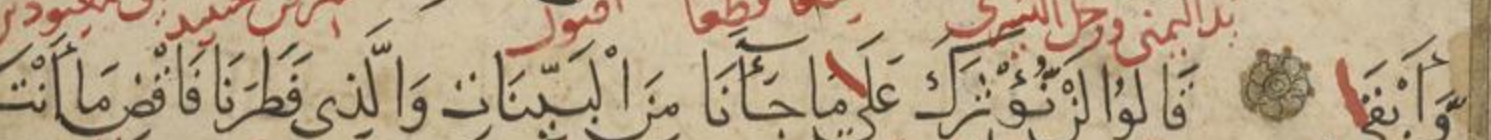 بد اليمنى ورجل اليسرى
وَّأَبْقَىٰ قَالُوا لَنْ نُّؤْثِرَكَ عَلَىٰ مَا جَآءَنَا مِنَ الْبَيِّنَاتِ وَالَّذِى فَطَرَنَا فَاقْضِ مَا أَنْتَ